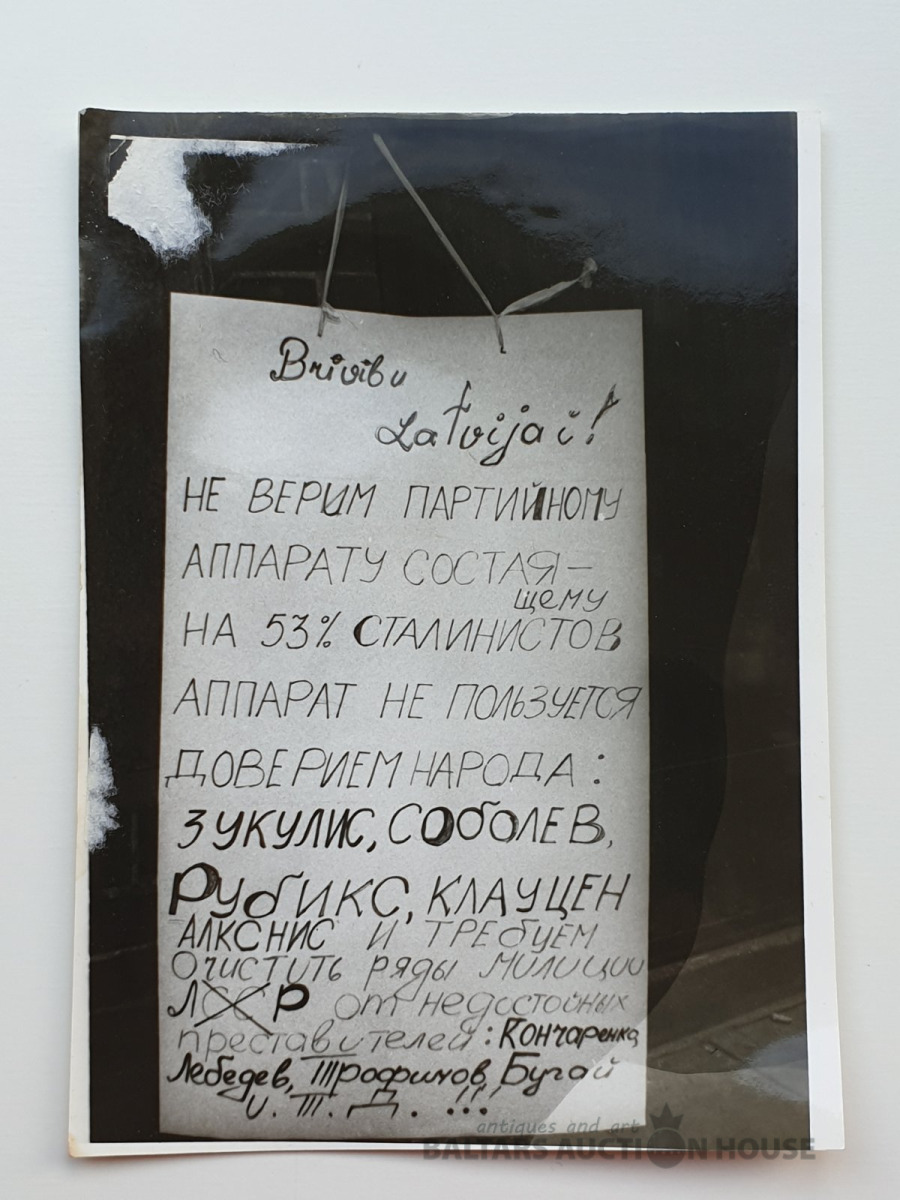 Brivibu
Latvijai!
НЕ ВЕРИМ ПАРТИЙНОМУ
АППАРАТУ СОСТАЯ-
щему
НА 53% СТАЛИНИСТОВ
АППАРАТ НЕ ПОЛЬЗУЕТСЯ
ДОВЕРИЕМ НАРОДА:
ЗУКУЛИС, СОБОЛЕВ,
РУБИКС, КЛАУЦЕН
АЛКСНИС И ТРЕБУЕМ
Очистить ряды милиции
ЛССР от недостойных
преставителей: Кончаренко,
Лебедев, Трофимов, Бугай
и. Т. Д. !!!
antiques and art
BALTARS AUCTION HOUSE